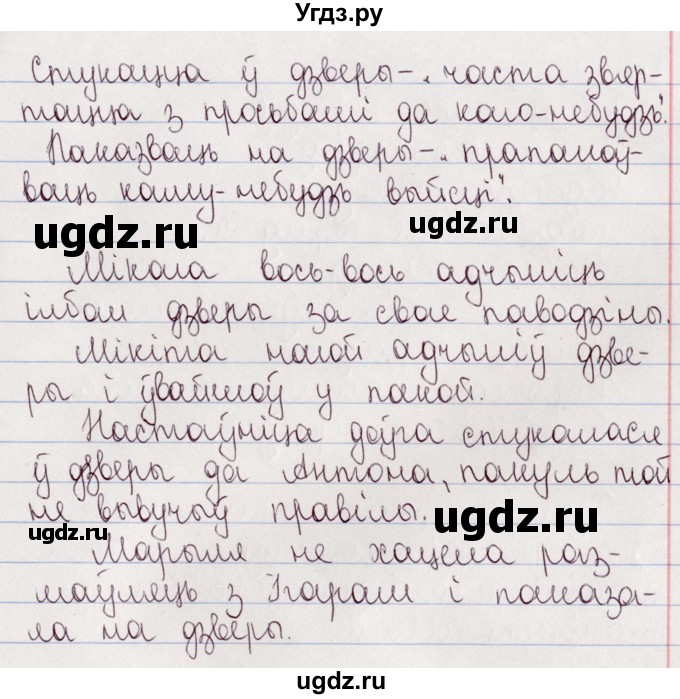 Угдз.ру
Стукацца ў дзверы – "часта звяр-
тацца з просьбамі да каго-небудзь".
Паказваць на дзверы – "прапаноў-
ваць каму-небудзь выйсці".
ugdz.ru
ugdz.ru
Мікола вось-вось адчыніць
ілбом дзверы за свае паводзіны.
Мікіта нагой адчыніў дзве-
ры і ўвайшоў у пакой.
Настаўніца доўга стукалася
ў дзверы да Антона, пакуль той
не вывучыў правілы.
ugdz.ru
ugdz.ru
Марыля не хацела раз-
маўляць з Ігарам і паказа-
ла на дзверы.
ugdz.ru
ugdz.ru